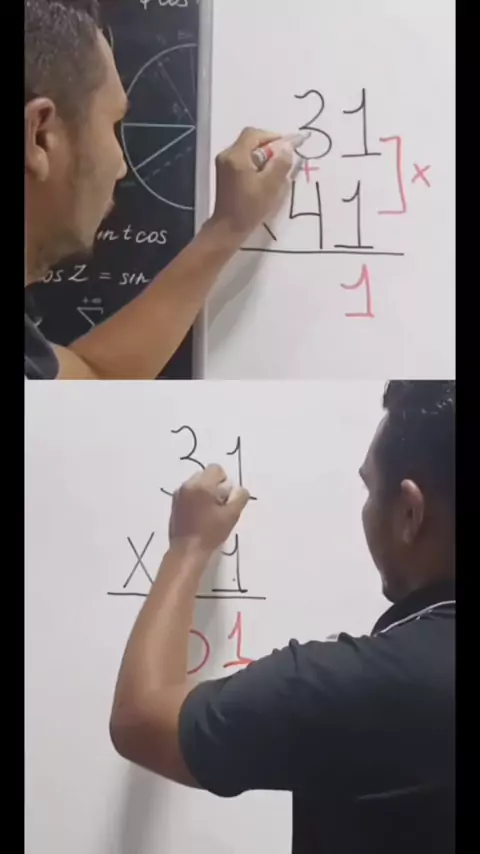 φ cos
31
+
] x
41
int cos
1
os Z = sin
+∞
Σ
31
X 1
01